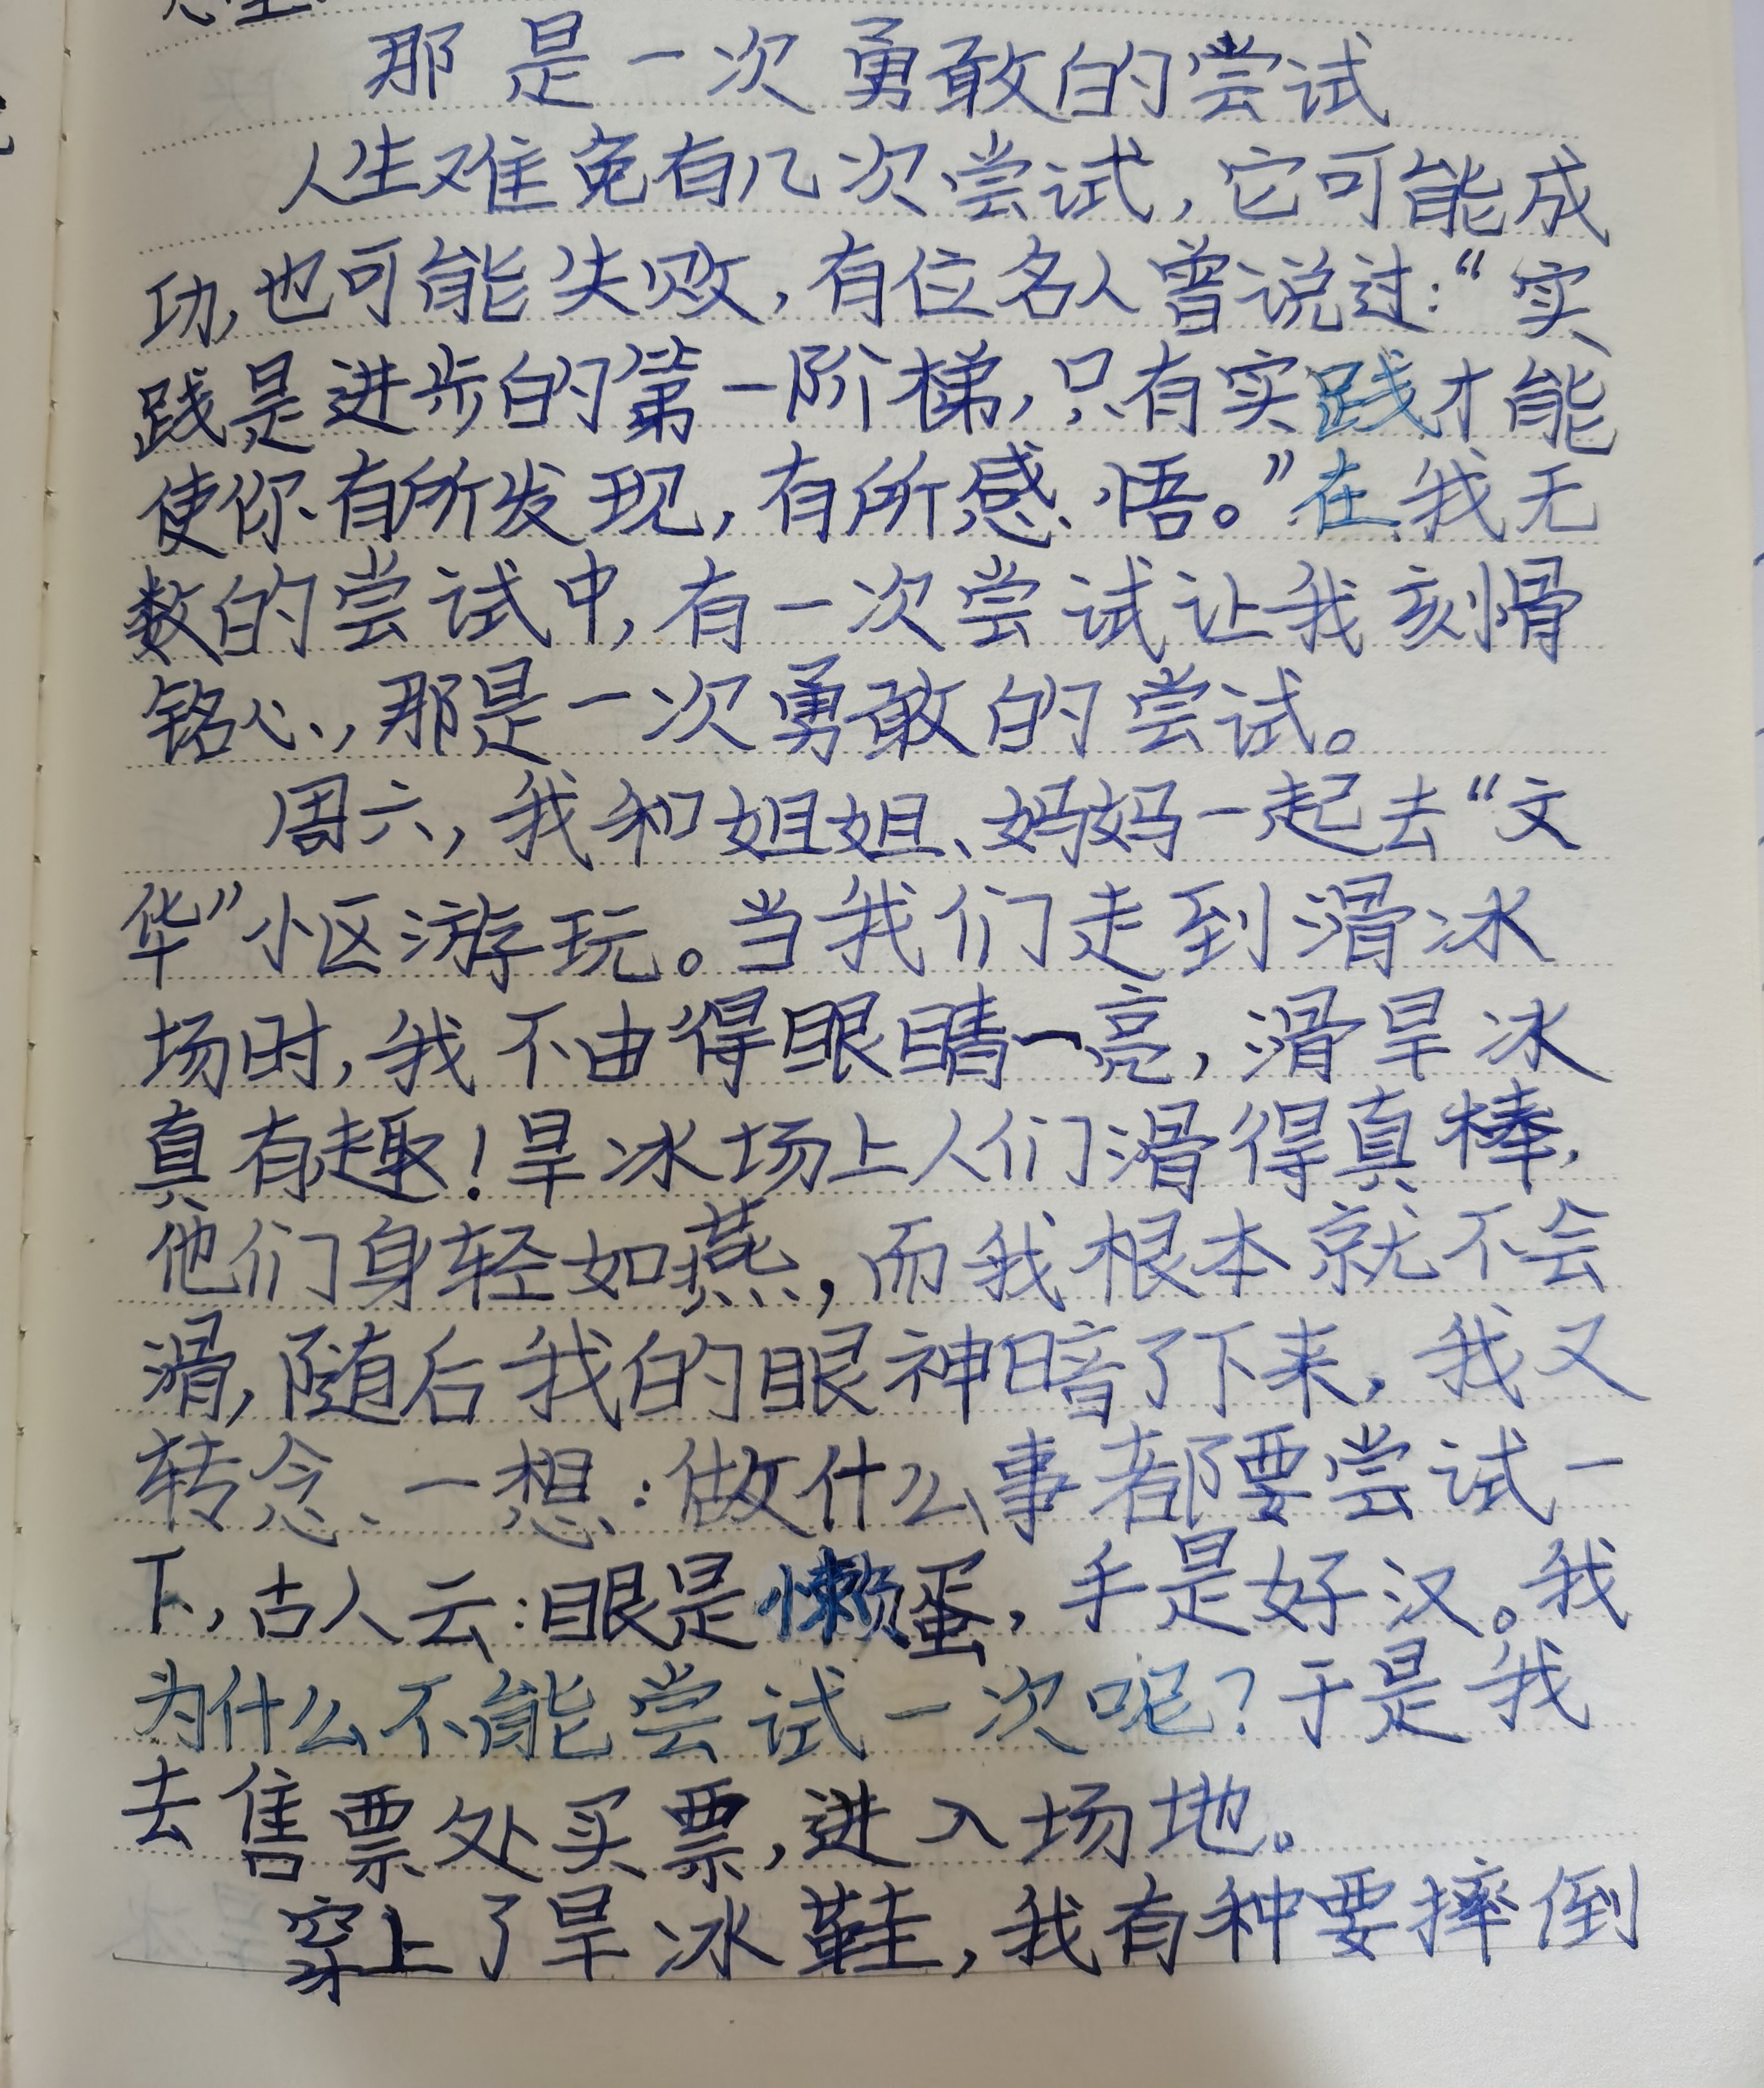 那是一次勇敢的尝试
人生难免有几次尝试，它可能成
功，也可能失败，有位名人曾说过：“实
践是进步的第一阶梯，只有实践才能
使你有所发现，有所感悟。”在我无
数的尝试中，有一次尝试让我刻骨
铭心，那是一次勇敢的尝试。
周六，我和姐姐、妈妈一起去“文
华”小区游玩。当我们走到滑冰
场时，我不由得眼睛一亮，滑旱冰
真有趣！旱冰场上人们滑得真棒，
他们身轻如燕，而我根本就不会
滑，随后我的眼神暗了下来，我又
转念一想：做什么事都要尝试一
下，古人云：眼是懒蛋，手是好汉。我
为什么不能尝试一次呢？于是我
去售票处买票，进入场地。
穿上了旱冰鞋，我有种要摔倒